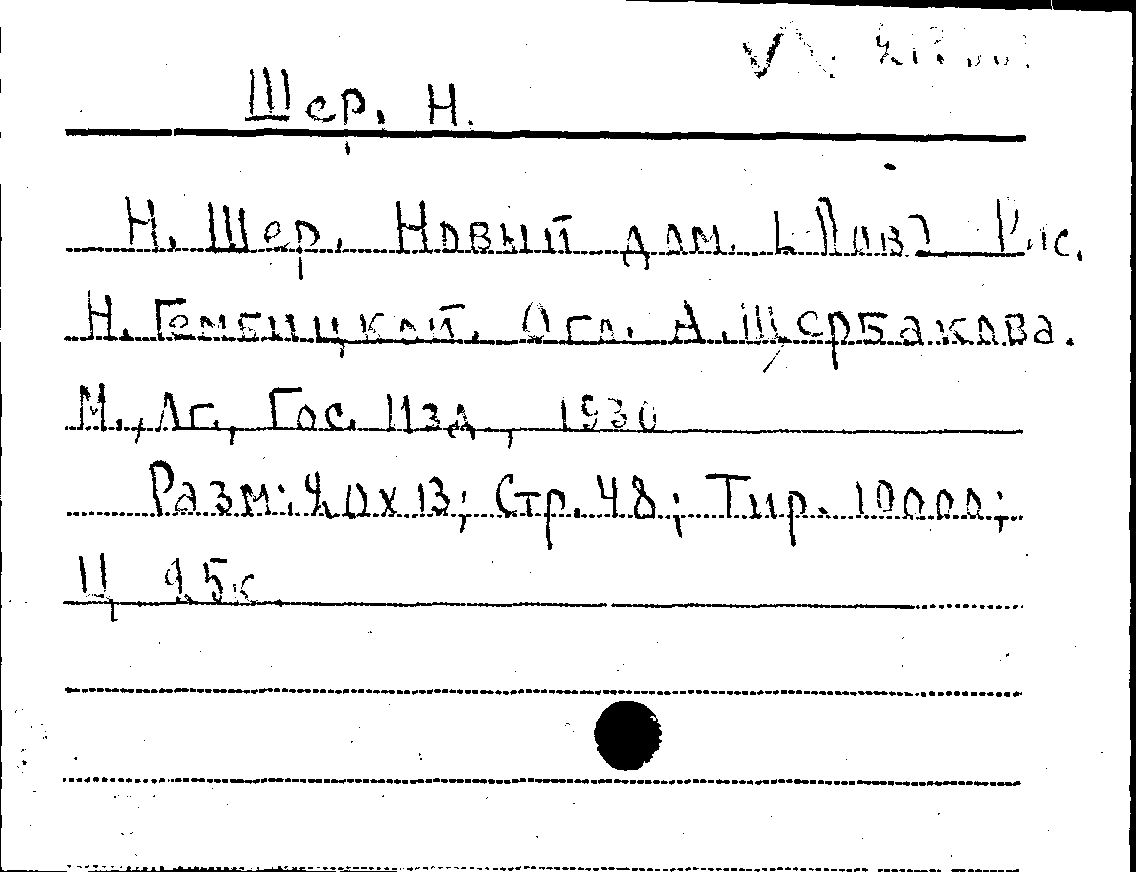 Шер, Н.
Н. Шер. Новый дом. [Пов] Рис.
Н. Гембицкой. Огл. А. Щербакова.
М., Лг., Гос. Изд, 1930
Разм: 20х13; Стр. 48; Тир. 10000;
Ц 25к